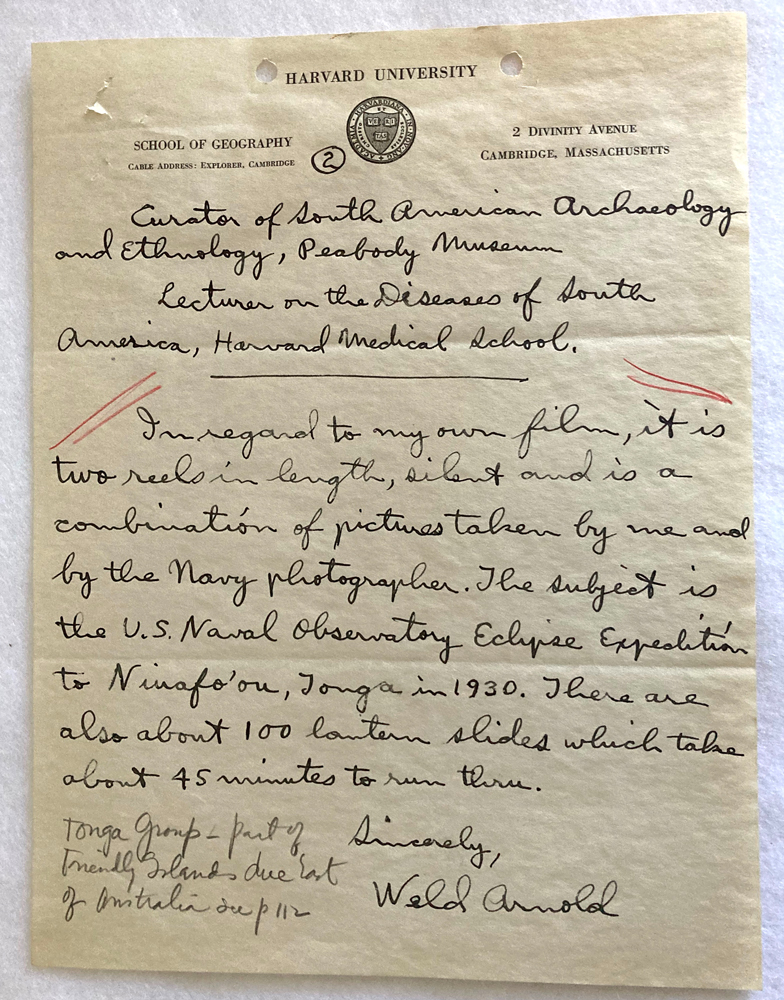 HARVARD UNIVERSITY
SCHOOL OF GEOGRAPHY
CABLE ADDRESS: EXPLORER, CAMBRIDGE
2
VE RI TAS
2 DIVINITY AVENUE
CAMBRIDGE, MASSACHUSETTS
Curator of South American Archaeology
and Ethnology, Peabody Museum
Lecturer on the Diseases of South
America, Harvard Medical School.
In regard to my own film, it is
two reels in length, silent and is a
combination of pictures taken by me and
by the Navy photographer. The subject is
the U.S. Naval Observatory Eclipse Expedition
to Niuafo'ou, Tonga in 1930. There are
also about 100 lantern slides which take
about 45 minutes to run thru.
Sincerely,
Weld Arnold
Tonga Group - part of
Friendly Islands due East
of Australia see p 112